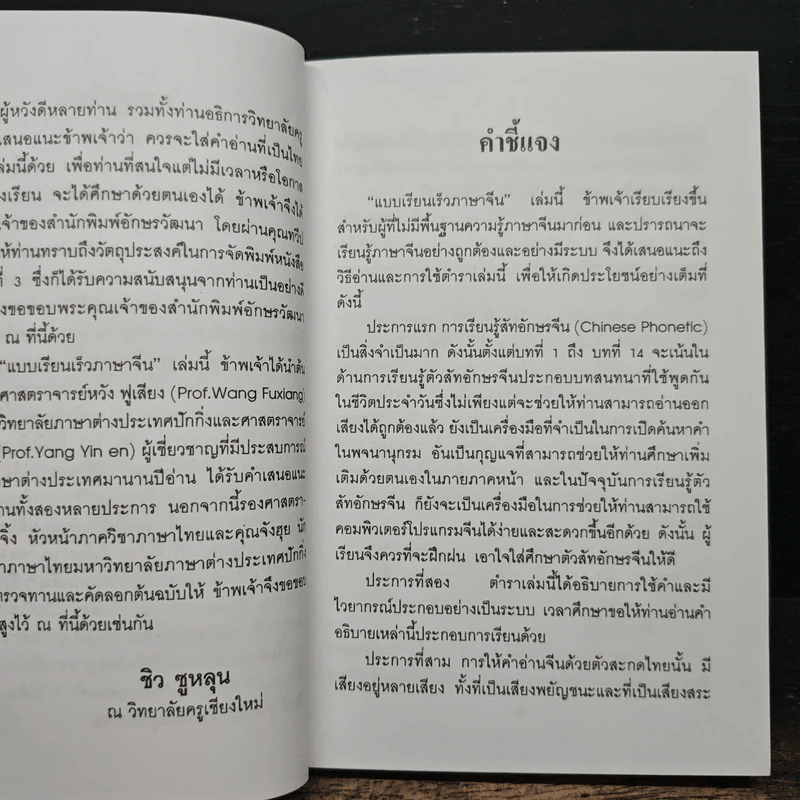 ผู้หวังดีหลายท่าน รวมทั้งท่านอธิการวิทยาลัยครู
เสนอแนะข้าพเจ้าว่า ควรจะใส่คำอ่านที่เป็นไทย
เล่มนี้ด้วย เพื่อท่านที่สนใจแต่ไม่มีเวลาหรือโอกาส
งเรียน จะได้ศึกษาด้วยตนเองได้ ข้าพเจ้าจึงได้
จ้าของสำนักพิมพ์อักษรวัฒนา โดยผ่านคุณทวีป
ห้ท่านทราบถึงวัตถุประสงค์ในการจัดพิมพ์หนังสือ
ที่ 3 ซึ่งก็ได้รับความสนับสนุนจากท่านเป็นอย่างดี
งขอขอบพระคุณเจ้าของสำนักพิมพ์อักษรวัฒนา
ณ ที่นี้ด้วย
“แบบเรียนเร็วภาษาจีน” เล่มนี้ ข้าพเจ้าได้นำต้น
ศาสตราจารย์หวัง ฟูเสียง (Prof.Wang Fuxiang)
วิทยาลัยภาษาต่างประเทศปักกิ่งและศาสตราจารย์
(Prof.Yang Yin en) ผู้เชี่ยวชาญที่มีประสบการณ์
ษาต่างประเทศมานานปีอ่าน ได้รับคำเสนอแนะ
านทั้งสองหลายประการ นอกจากนี้รองศาสตรา-
จิ้ง หัวหน้าภาควิชาภาษาไทยและคุณจังฮุย นัก
าภาษาไทยมหาวิทยาลัยภาษาต่างประเทศปักกิ่ง
ตรวจทานและคัดลอกต้นฉบับให้ ข้าพเจ้าจึงขอขอบ
สูงไว้ ณ ที่นี้ด้วยเช่นกัน
ชิว ซูหลุน
ณ วิทยาลัยครูเชียงใหม่
คำชี้แจง
“แบบเรียนเร็วภาษาจีน” เล่มนี้ ข้าพเจ้าเรียบเรียงขึ้น
สำหรับผู้ที่ไม่มีพื้นฐานความรู้ภาษาจีนมาก่อน และปรารถนาจะ
เรียนรู้ภาษาจีนอย่างถูกต้องและอย่างมีระบบ จึงได้เสนอแนะถึง
วิธีอ่านและการใช้ตำราเล่มนี้ เพื่อให้เกิดประโยชน์อย่างเต็มที่
ดังนี้
ประการแรก การเรียนรู้สัทอักษรจีน (Chinese Phonetic)
เป็นสิ่งจำเป็นมาก ดังนั้นตั้งแต่บทที่ 1 ถึง บทที่ 14 จะเน้นใน
ด้านการเรียนรู้ตัวสัทอักษรจีนประกอบบทสนทนาที่ใช้พูดกัน
ในชีวิตประจำวันซึ่งไม่เพียงแต่จะช่วยให้ท่านสามารถอ่านออก
เสียงได้ถูกต้องแล้ว ยังเป็นเครื่องมือที่จำเป็นในการเปิดค้นหาคำ
ในพจนานุกรม อันเป็นกุญแจที่สามารถช่วยให้ท่านศึกษาเพิ่ม
เติมด้วยตนเองในภายภาคหน้า และในปัจจุบันการเรียนรู้ตัว
สัทอักษรจีน ก็ยังจะเป็นเครื่องมือในการช่วยให้ท่านสามารถใช้
คอมพิวเตอร์โปรแกรมจีนได้ง่ายและสะดวกขึ้นอีกด้วย ดังนั้น ผู้
เรียนจึงควรที่จะฝึกฝน เอาใจใส่ศึกษาตัวสัทอักษรจีนให้ดี
ประการที่สอง ตำราเล่มนี้ได้อธิบายการใช้คำและมี
ไวยากรณ์ประกอบอย่างเป็นระบบ เวลาศึกษาขอให้ท่านอ่านคำ
อธิบายเหล่านี้ประกอบการเรียนด้วย
ประการที่สาม การให้คำอ่านจีนด้วยตัวสะกดไทยนั้น มี
เสียงอยู่หลายเสียง ทั้งที่เป็นเสียงพยัญชนะและที่เป็นเสียงสระ